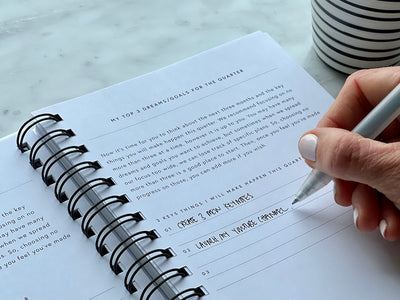 MY TOP 3 DREAMS/GOALS FOR THE QUARTER
Now it's time for you to think about the next three months and the key
things you will make happen this quarter. We recommend focusing on no
more than three at a time, however it is up to you. You may have many
dreams and goals you want to achieve, but sometimes when we spread
our focus too wide, we can lose track of specific plans. So, choosing no
more than three is a good place to start. Then, once you feel you've made
progress on those, you can add more if you wish.
3 KEYS THINGS I WILL MAKE HAPPEN THIS QUARTER:
01 CREATE 3 NEW
02 LAUNCH MY YOUTUBE CHANNEL
03
the key
ing on no
ve many
spread
osing no
've made